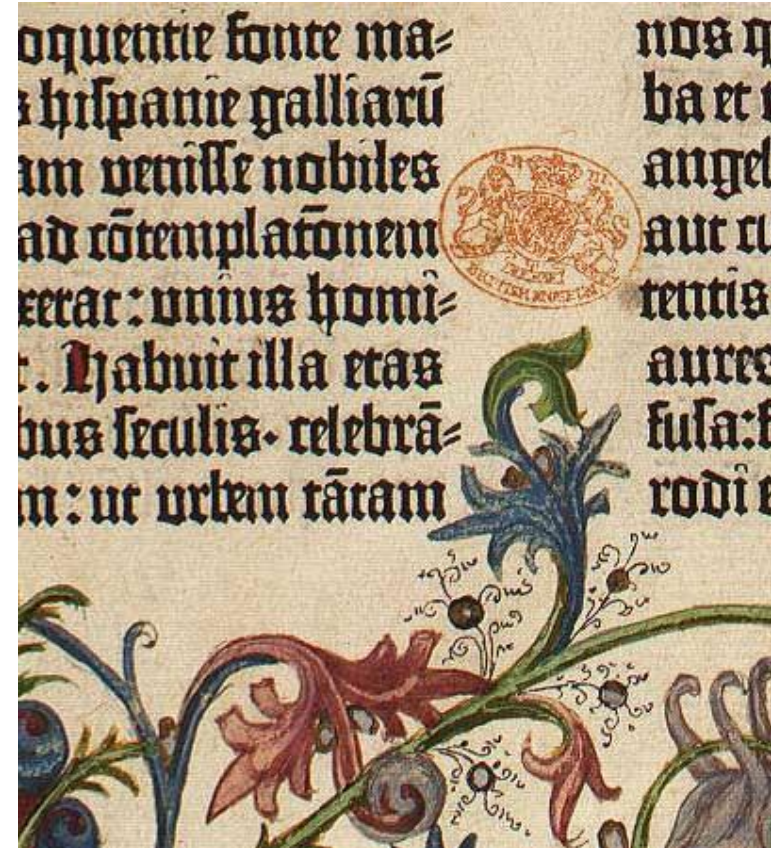 oquentie fonte ma⸗
s hiſpanie galliarū
am veniſſe nobiles
ad cōtemplatōnem
xerat: unius homi⸗
t. Habuit illa etas
bus ſeculis· celebrā⸗
m: ut urbem tātam
nos q
ba et
angel
aut cu
tentis
aures
fuſa:
rodi e
BRITISH